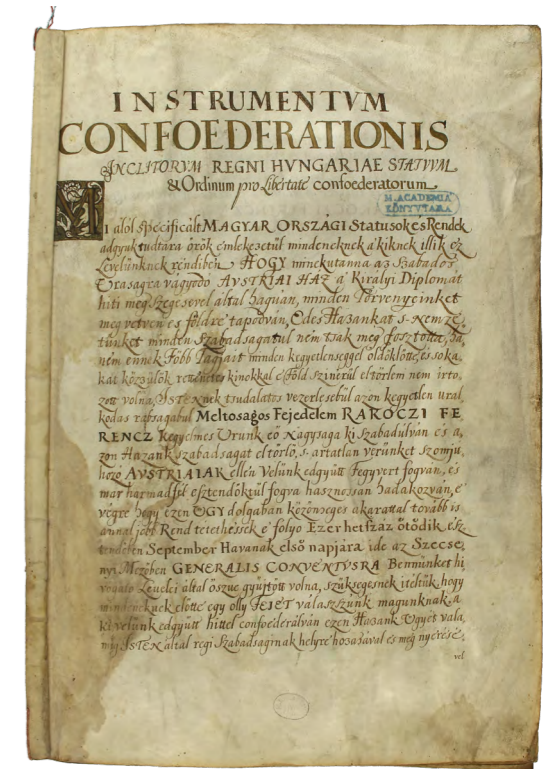 INSTRUMENTVM
CONFOEDERATIONIS
INCLITORVM REGNI HVNGARIAE STATVVM
& Ordinum pro Libertate confoederatorum
M. ACADEMIA
KÖNYVTARA
MI alól specificált MAGYAR ORSZÁGI Statusok es Rendek
adgyuk tudtára örök emlekezetül mindeneknek a' kiknek illik ez
Levelünknek rendiben HOGY minekutanna az Szabados
Uraságra vágyódó AVSTRIAI HÁZ a' Királyi Diplomát
hiti megszegesevel által hágván, minden Törvenyeinket
meg vetven es földre tapodván, Edes Hazánkat s- Nemze
tünket minden Szabadságátúl nem tsak meg fosztotta, ha
nem ennek Főbb Tagjait minden kegyetlenseggel öldöklötte, és soka
kat közzülök rettenetes kinokkal e' Föld szinerül eltörlem nem irto
zott volna, ISTENnek tsudalatos vezerlesebül azon kegyetlen ural
kodás rabságábúl Meltosagos Fejedelem RAKOCZI FE
RENCZ kegyelmes Urunk eő Nagysaga ki szabadúlván és a
zon Hazánk szabadságát eltörlő, s- ártatlan verünket szomju
hozó AVSTRIAIAK ellén Velünk edgyütt Fegyvert fogván, és
már harmadfel esztendőktül fogva hasznossan hadakozván, e
végre hogy ezen VGY dolgában közönseges akarattal tovább is
annál jobb Rend tetethessék e' folyo Ezer hetszáz ötödik esz
tendőben September Havanak első napjára ide az Szecse
nyi Mezőben GENERALIS CONVENTVSRA Bennünket hi
vogató Levelei által öszve gyüjtött volna, szüksegesnek iteltük hogy
mindeneknek előtte egy olly FEJET válaszszunk magunknak, a
ki velünk edgyütt hittel confoederálván ezen Hazánk Vgyet vala
míg ISTEN által regi Szabadsaginak helyre hozásával es meg nyerese
vel